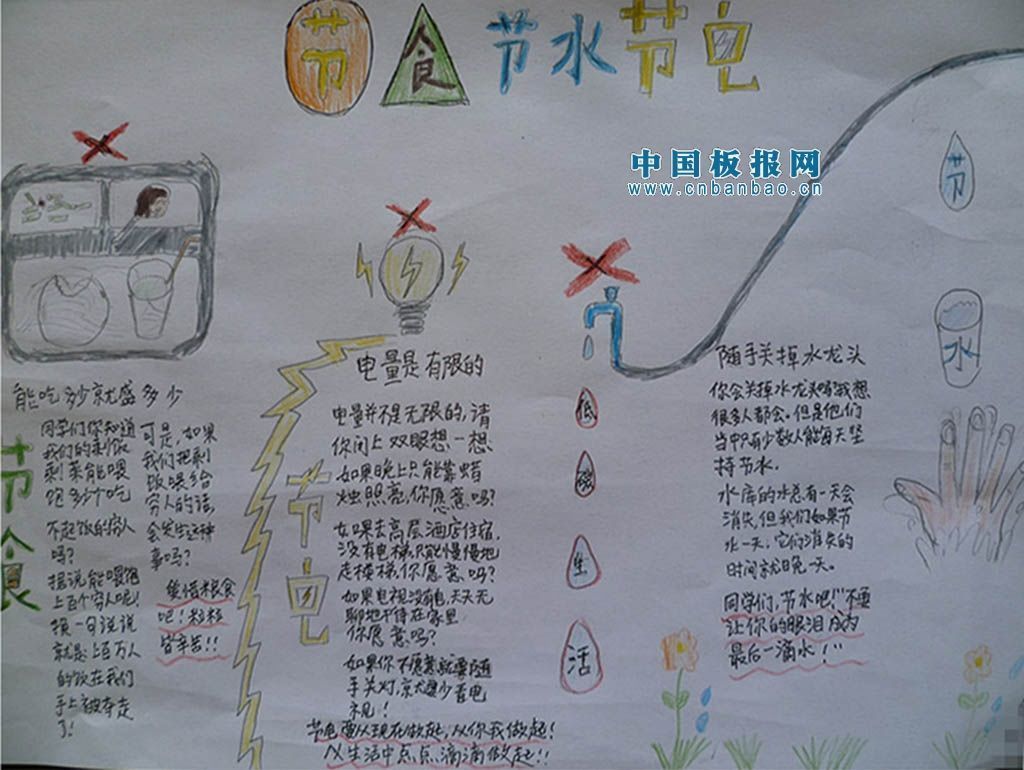 节食节水节电
中国板报网
www.cnbanbao.cn
节
水
能吃多少就盛多少
节食
同学们你知道
我们的剩饭
剩菜能喂
饱多少个吃
不起饭的穷人
吗?
据说能喂饱
上百个穷人呢!
换一句说说
就是上百万人
的饭在我们
手上被夺走
了!
可是,如果
我们把剩
饭喂给
穷人的话,
会发生这种
事吗?
爱惜粮食
吧!粒粒
皆辛苦!!
节电
电量是有限的
电量并不是无限的,请
你闭上双眼想一想,
如果晚上只能靠蜡
烛照亮,你愿意吗?
如果去高层酒店住宿,
没有电梯,只能慢慢地
走楼梯,你愿意吗?
如果电视没有电,天天无
聊地干待在家里,
你愿意吗?
如果你不愿意就要随
手关灯,尽量少看电
视!
节电要从现在做起,从你我做起!
从生活中点点滴滴做起!!
低
碳
生
活
随手关掉水龙头
你会关掉水龙头吗?我想
很多人都会,但是他们
当中只有少数人能每天坚
持节水。
水库的水总有一天会
消失,但我们如果节
水一天,它们消失的
时间就晚一天。
同学们,节水吧!"不要
让你的眼泪成为
最后一滴水!"